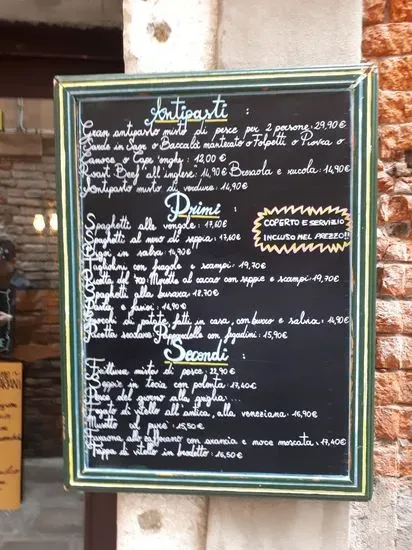 Antipasti :
Gran antipasto misto di pesce per 2 persone: 29,90 €
Sarde in Saor o Baccalà mantecato o Folpetti o Piovra o
Canoce o Cape longhe: 12,00 €
Roast Beef all'inglese: 14,90 € Bresaola e rucola: 14,90 €
Antipasto misto di verdure: 14,90 €
Primi :
COPERTO E SERVIZIO
INCLUSO NEL PREZZO!!
Spaghetti alle vongole: 17,60 €
Spaghetti al nero di seppia: 17,60 €
Bigoi in salsa: 14,90 €
Tagliolini con fragole e scampi: 19,70 €
Ricetta del 700 al cacao con seppie e scampi: 19,70 €
Spaghetti alla busara: 18,70 €
Pasta e fasioi: 14,90 €
Gnocchi di patate, fatti in casa, con burro e salvia: 14,90 €
Ricetta Pappardelle con fegadini: 15,90 €
Secondi :
Frittura mista di pesce: 22,90 €
Seppie in tecia con polenta: 17,40 €
Pesce del giorno alla griglia...
Fegato di vitello all'antica, alla veneziana: 16,90 €
Musetto col purè: 15,50 €
allo zafferano con arancia e noce moscata: 17,40 €
Trippa di vitello in brodetto: 16,50 €